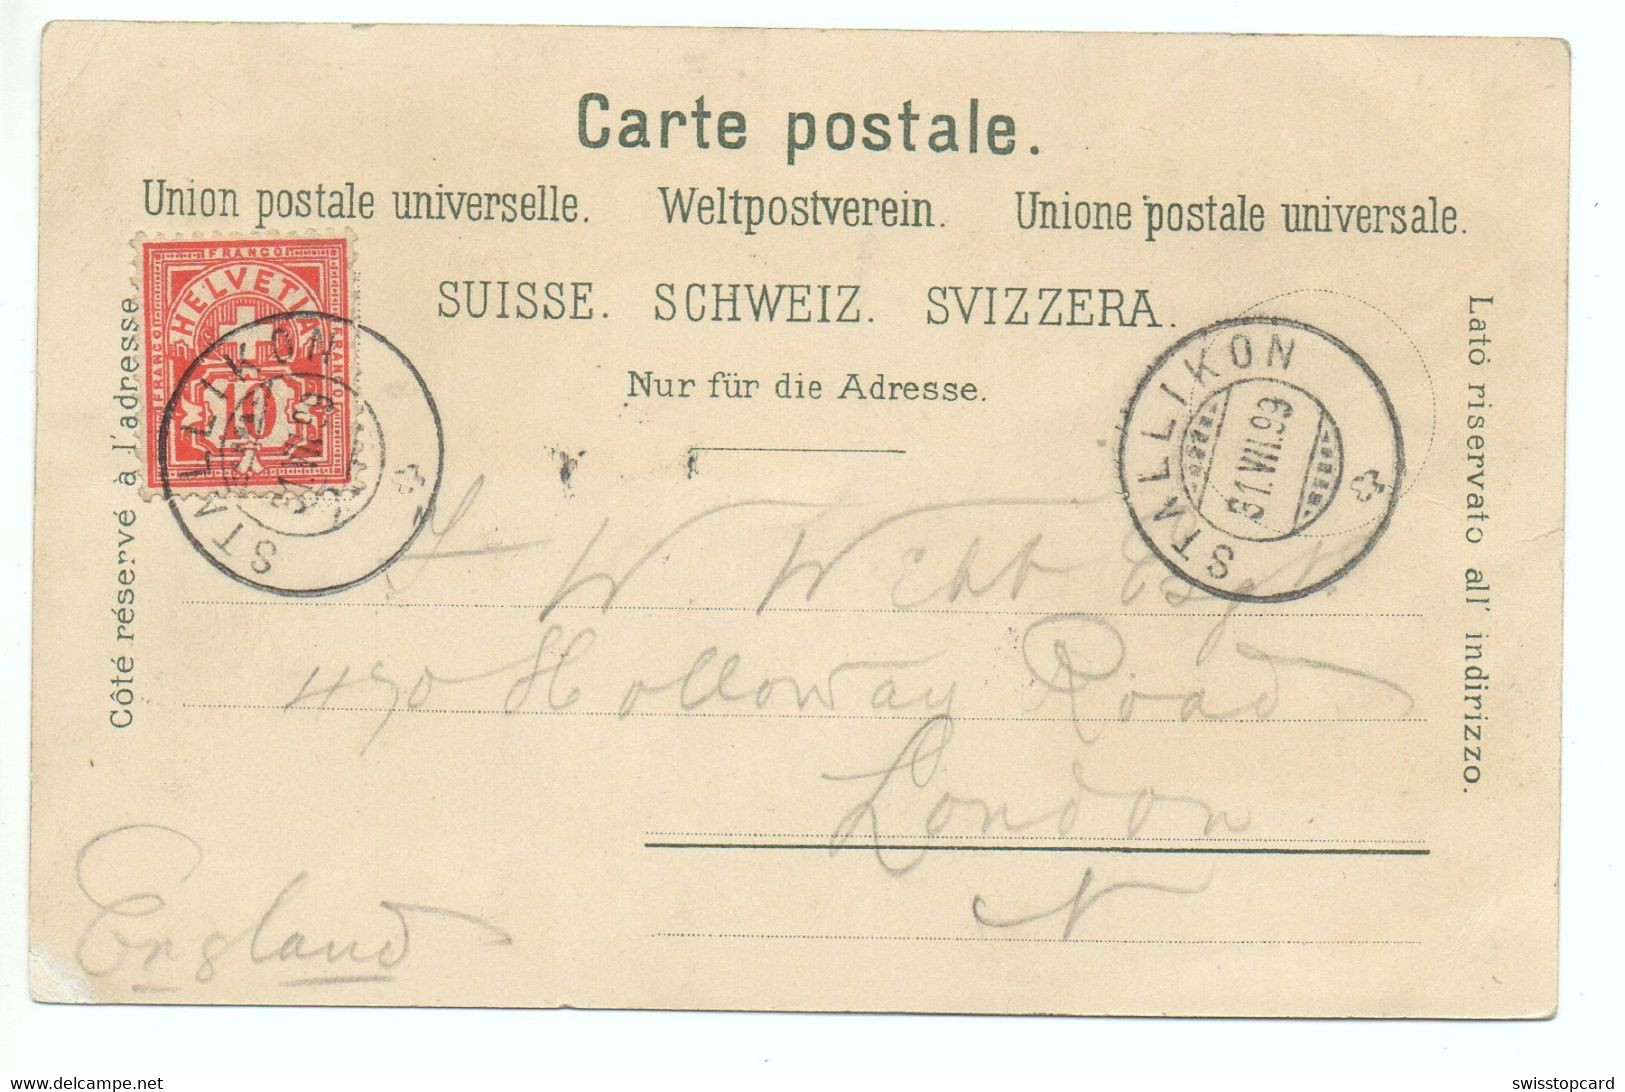 Carte postale.
Union postale universelle. Weltpostverein. Unione postale universale.
SUISSE. SCHWEIZ. SVIZZERA.
Nur für die Adresse.
Côté réservé à l'adresse
Lató riservato all' indirizzo.
FRANCO
HELVETIA
FRANCO
FRANCO
10
STALLIKON
STALLIKON
31.VII.99
W. Webb Esqr.
490 Holloway Road
London
N
England
swisstopcard